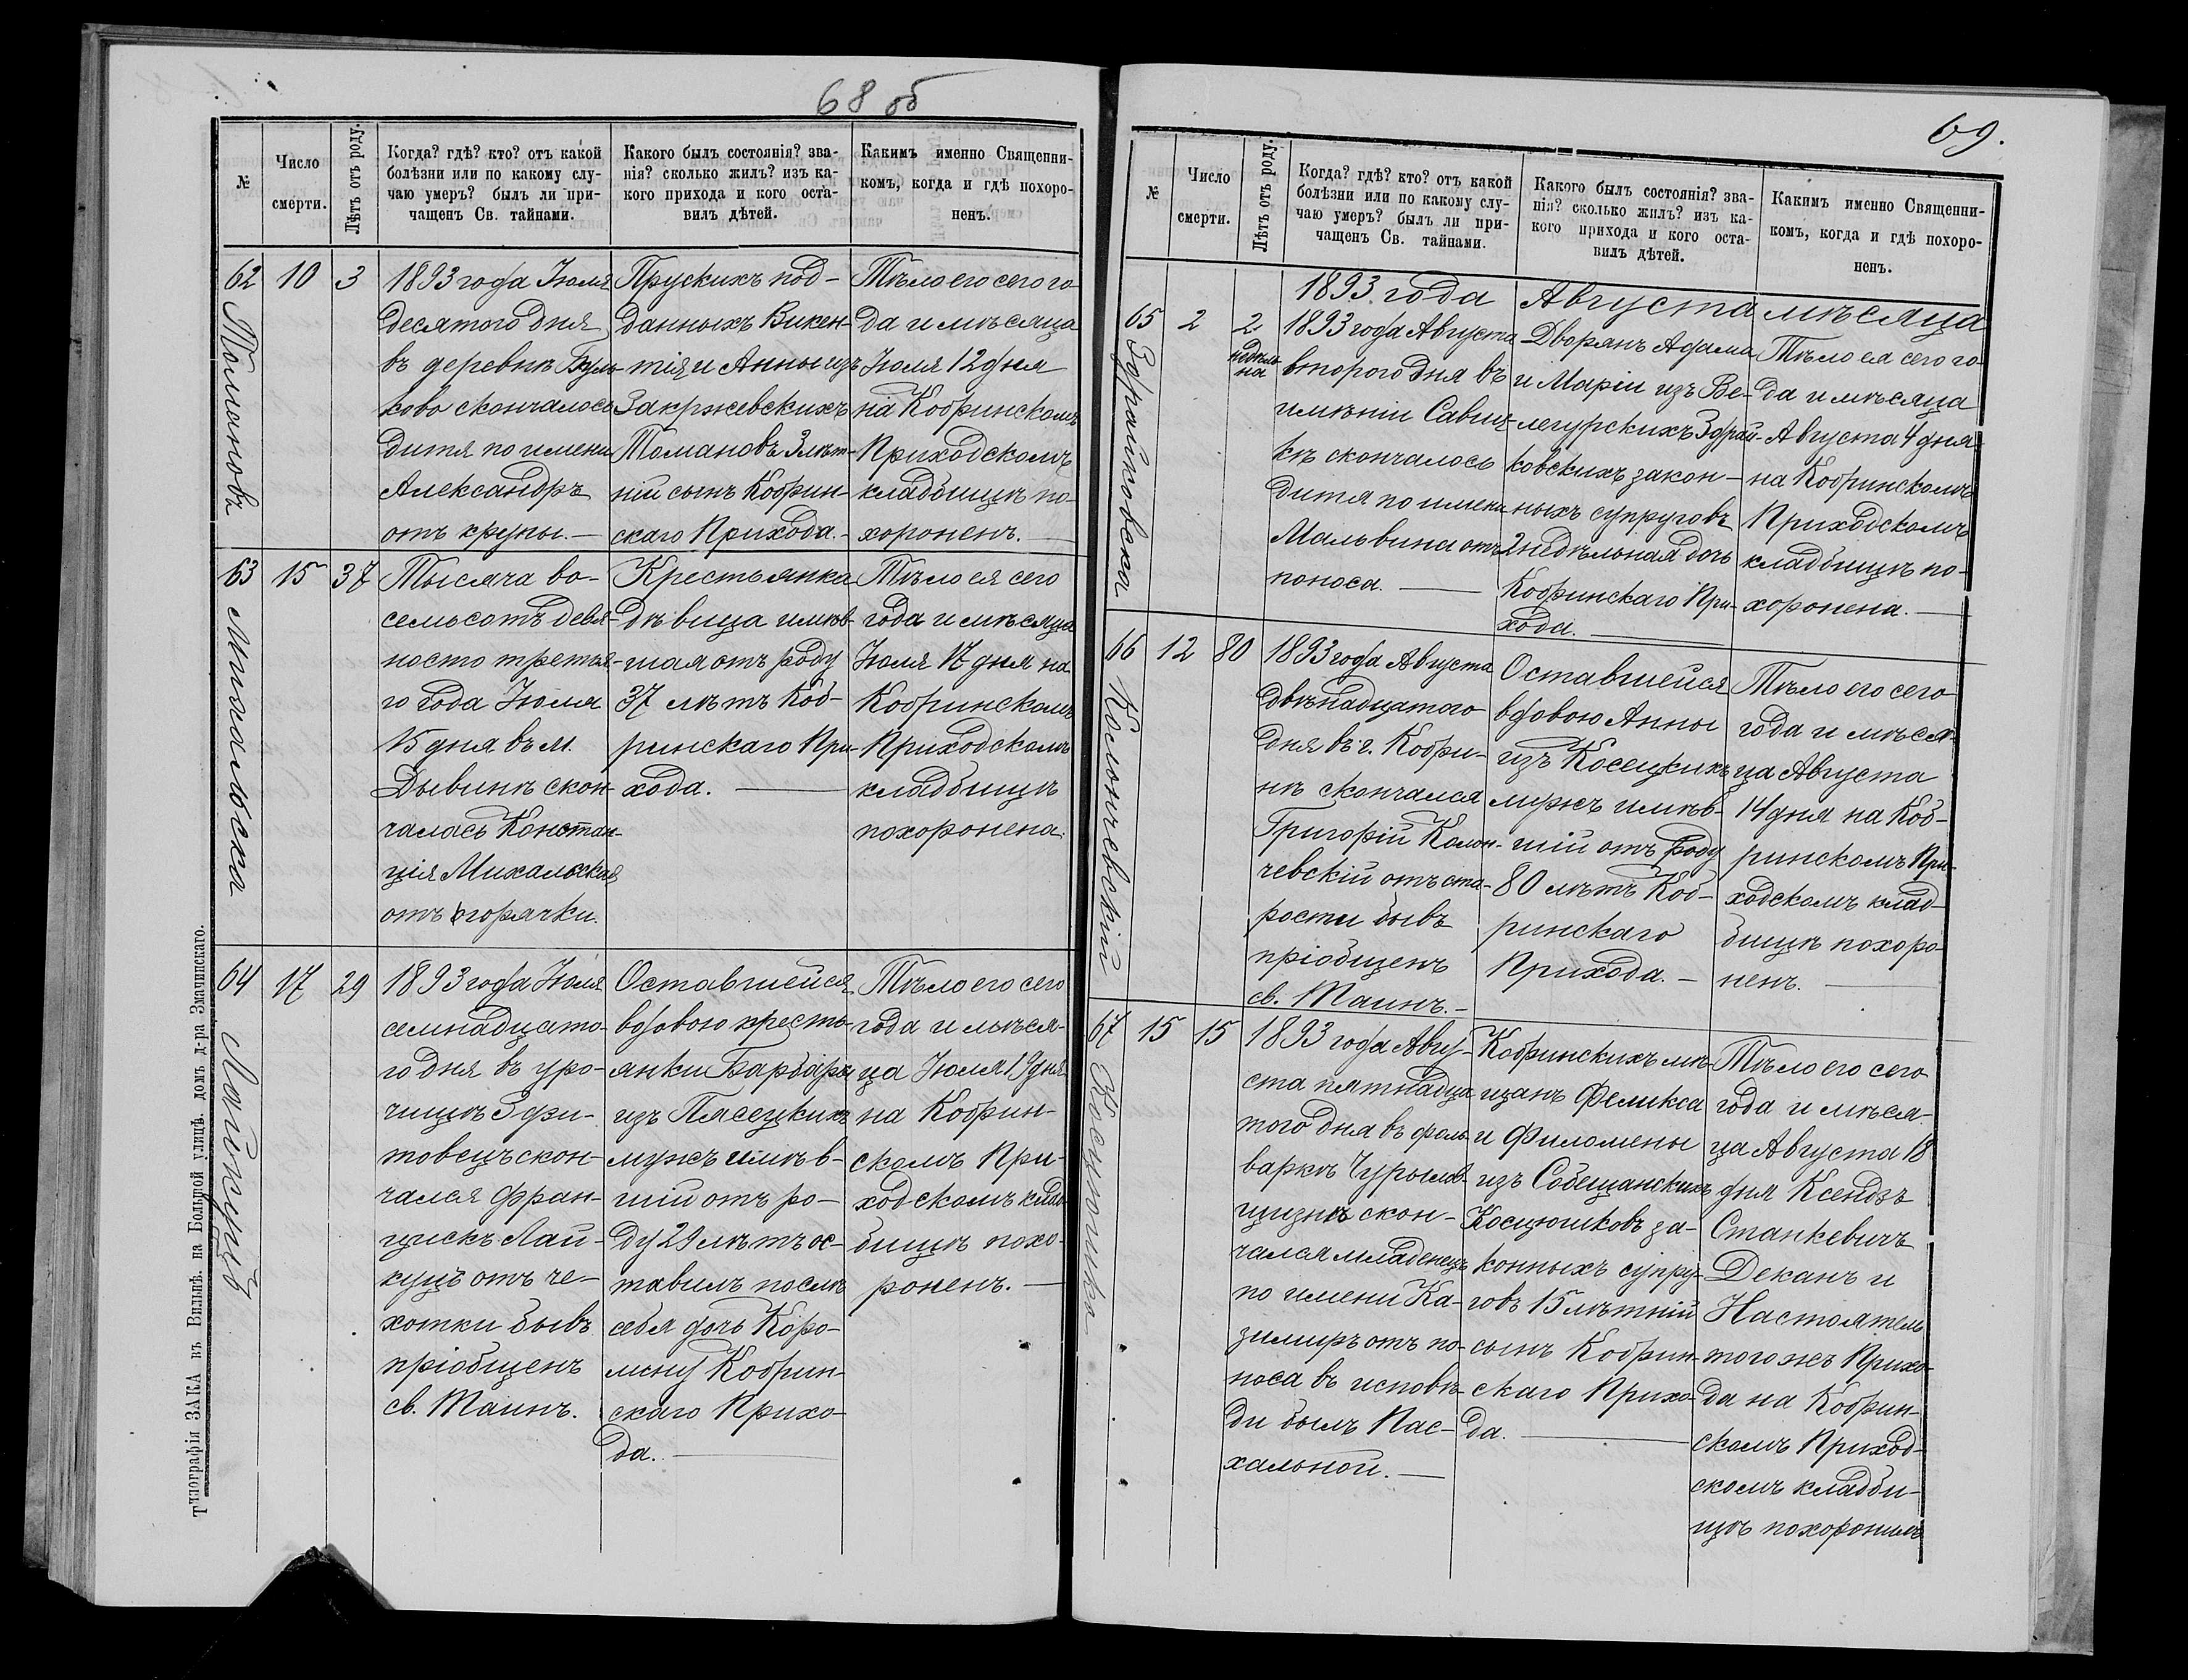 68 об
№
Число
смерти.
Лѣтъ отъ роду.
Когда? гдѣ? кто? отъ какой
болѣзни или по какому слу-
чаю умеръ? былъ ли при-
чащенъ Св. тайнами.
Какого былъ состоянія? зва-
нія? сколько жилъ? изъ ка-
кого прихода и кого оста-
вилъ дѣтей.
Какимъ именно Священни-
комъ, когда и гдѣ похоро-
ненъ.
62
Томановъ
10
3
1893 года Іюля
десятого дня
въ деревнѣ
ково скончалось
дитя по имени
Александръ
отъ крупы. —
Прускихъ под-
данныхъ Викен-
тія и Анны изъ
Закржевскихъ
Томановъ 3 лѣт-
ній сынъ Кобрин-
скаго Прихода. -
Тѣло его сего го-
да и мѣсяца
Іюля 12 дня
на Кобринскомъ
Приходскомъ
кладбищѣ по-
хороненъ. —
63
Михальска
15
37
Тысяча во-
семьсотъ девя-
носто третья-
го года Іюля
15 дня въ м.
Дывинѣ скон-
чалась Констан-
ція Михальская
отъ горячки.
Крестьянка
дѣвица имѣв-
шая отъ роду
37 лѣтъ Коб-
ринскаго При-
хода. —
Тѣло ея сего
года и мѣсяца
Іюля 17 дня на
Кобринскомъ
Приходскомъ
кладбищѣ
похоронена.
64
Лайкуцъ
17
29
1893 года Іюля
семнадцато-
го дня въ уро-
чищѣ Зфи-
товецъ скон-
чался Фран-
цискъ Лай-
куцъ отъ че-
хотки бывъ
пріобщенъ
св. Таинъ.
Оставшейся
вдовою кресть-
янки Барбары
изъ Пясецкихъ
мужъ имѣв-
шій отъ ро-
ду 29 лѣтъ ос-
тавилъ послѣ
себя дочь Каро-
лину Кобрин-
скаго Прихо-
да. —
Тѣло его сего
года и мѣся-
ца Іюля 19 дня
на Кобрин-
скомъ При-
ходскомъ клад-
бищѣ похо-
роненъ. —
Типографія ЗАКА въ Вильнѣ. на Большой улицѣ. домъ д-ра Змачинскаго.
69.
№
Число
смерти.
Лѣтъ отъ роду.
Когда? гдѣ? кто? отъ какой
болѣзни или по какому слу-
чаю умеръ? былъ ли при-
чащенъ Св. тайнами.
Какого былъ состоянія? зва-
нія? сколько жилъ? изъ ка-
кого прихода и кого оста-
вилъ дѣтей.
Какимъ именно Священни-
комъ, когда и гдѣ похоро-
ненъ.
1893 года Августа мѣсяца
65
Здрайковска
2
2
недѣль-
на
1893 года Августа
второго дня въ
имѣніи Савиц-
кѣ скончалось
дитя по имени
Мальвина отъ
поноса. —
Дворянъ Адама
и Маріи изъ Ве-
легурскихъ Здрай-
ковскихъ закон-
ныхъ супруговъ
2 недѣльная дочь
Кобринскаго При-
хода. —
Тѣло ея сего го-
да и мѣсяца
Августа 4 дня
на Кобринскомъ
Приходскомъ
кладбищѣ по-
хоронена. —
66
Колончевскій
12
80
1893 года Августа
двѣнадцатого
дня въ г. Кобри-
нѣ скончался
Григорій Колон-
чевскій отъ ста-
рости бывъ
пріобщенъ
св. Таинъ. -
Оставшейся
вдовою Анны
изъ Косецкихъ
мужъ имѣв-
шій отъ роду
80 лѣтъ Коб-
ринскаго
Прихода. -
Тѣло его сего
года и мѣся-
ца Августа
14 дня на Коб-
ринскомъ При-
ходскомъ клад-
бищѣ похоро-
ненъ. —
67
Косцюшко
15
15
1893 года Авгу-
ста пятнадца-
того дня въ фоль-
варкѣ Чурылов-
щизнѣ скон-
чался младенецъ
по имени Ка-
зимиръ отъ по-
носа въ исповѣ-
ди былъ Пас-
хальной. —
Кобринскихъ мѣ-
щанъ Феликса
и Филомены
изъ Собещанскихъ
Косцюшковъ за-
конныхъ супру-
говъ 15 лѣтній
сынъ Кобрин-
скаго Прихо-
да. —
Тѣло его сего
года и мѣся-
ца Августа 18
дня Ксендзъ
Станкевичъ
Деканъ и
Настоятель
того жъ Прихо-
да на Кобрин-
скомъ Приход-
скомъ кладби-
щѣ похоронилъ